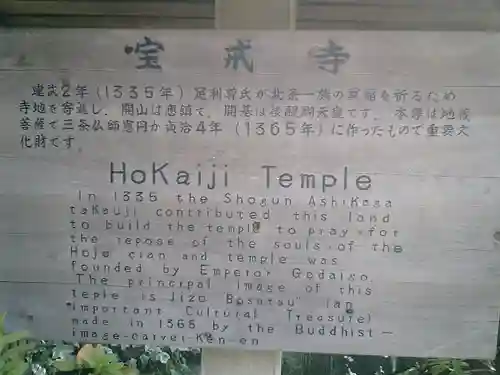 宝戒寺
建武2年(1335年)足利尊氏が北条一族の冥福を祈るため
寺地を寄進し、開山は恵鎮で、開基は後醍醐天皇です。本尊は地蔵
菩薩で三条仏師憲円が貞治4年(1365年)に作ったもので重要文
化財です。
HoKaiji Temple
In 1335 the Shogun AshiKaga
taKauji contributed this land
to build the temple to pray for
the repose of the souls of the
Hojo clan and temple was
founded by Emperor Godaiso.
The principal image of this
teple is Jizo Bosatsu" (an
important Cultural Treasure)
made in 1365 by the Buddhist-
image-carver-Ken-en